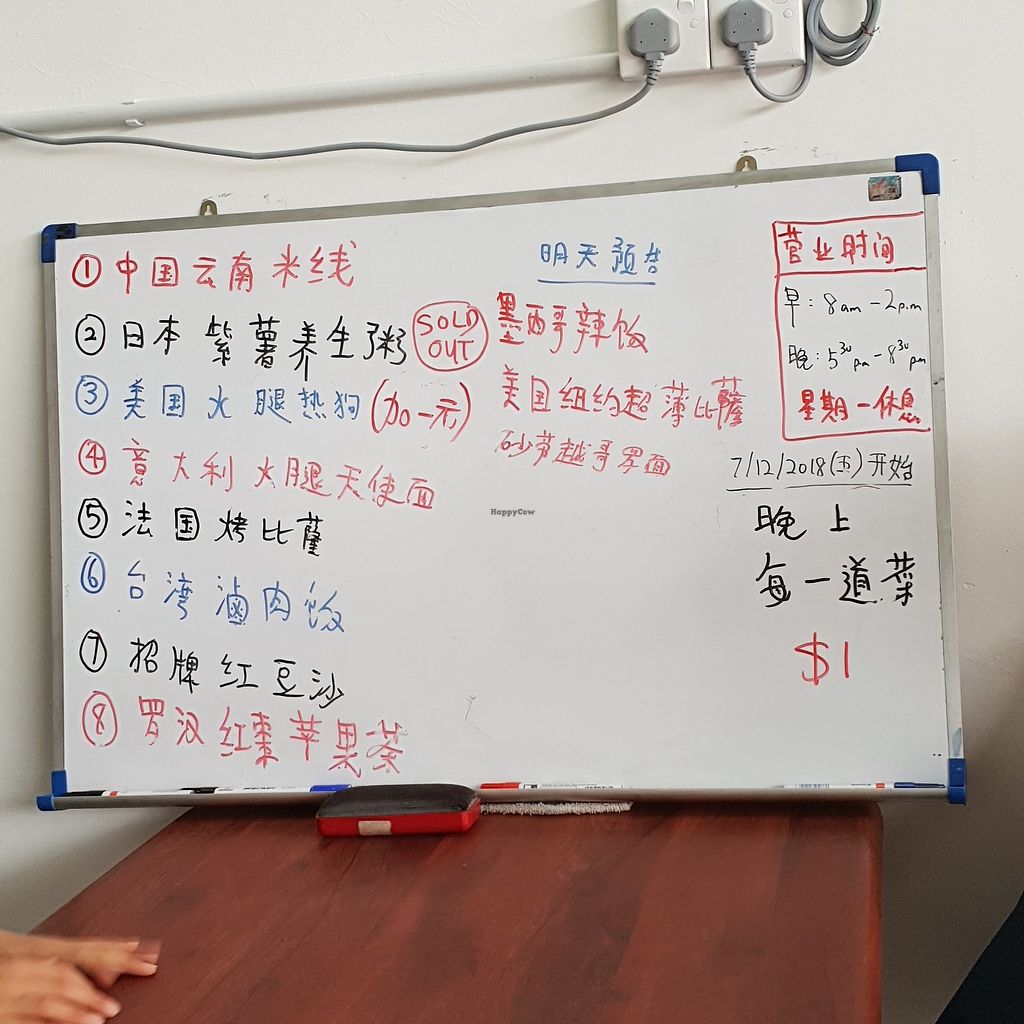 ① 中国云南米线
② 日本紫薯养生粥 SOLD OUT
③ 美国火腿热狗(加一元)
④ 意大利火腿天使面
⑤ 法国烤比薩
⑥ 台湾滷肉饭
⑦ 招牌红豆沙
⑧ 罗汉红棗苹果茶
明天预告
墨西哥辣饭
美国纽约超薄比薩
砂劳越哥罗面
营业时间
早: 8am-2p.m
晚: 5³⁰pm-8³⁰pm
星期一休息
7/12/2018(五)开始
晚上
每一道菜
$1
HappyCow